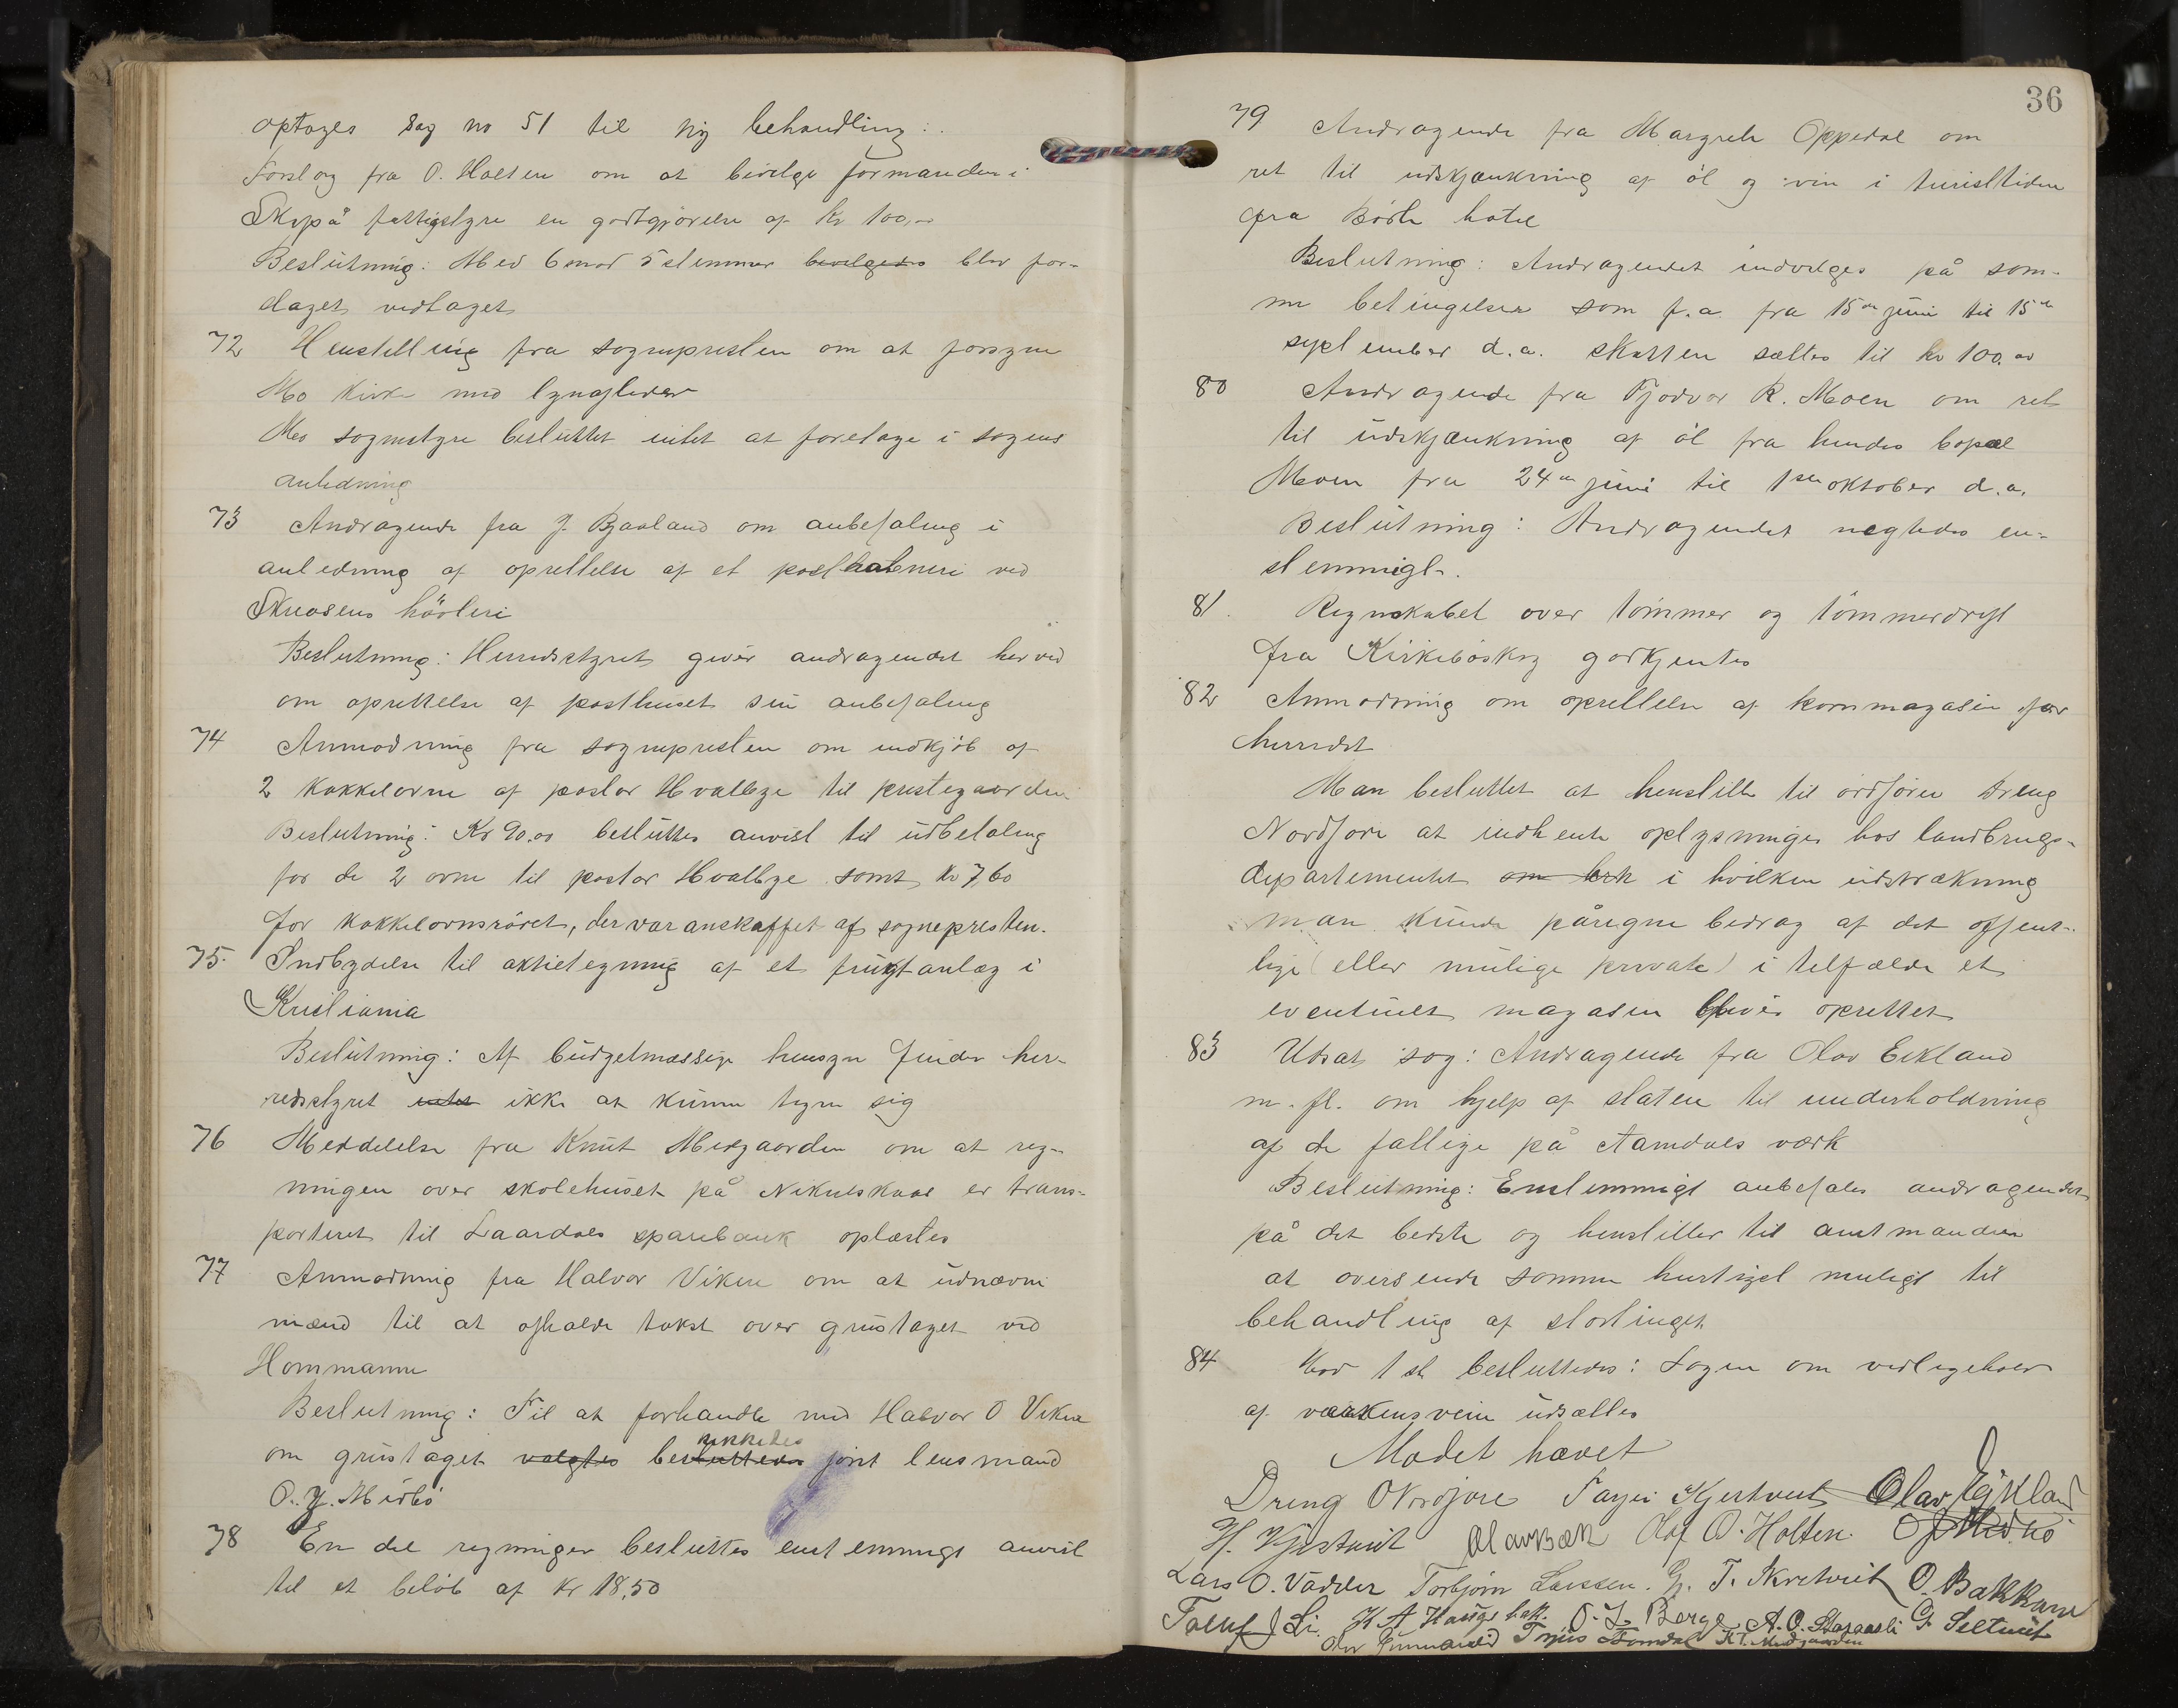 optages sag no 51 til ny behandling:
Forslag fra O. Holten om at bevilge formanden i
Skopå fattigstyre en godtgjörelse af Kr 100,-
Beslutning: Med 6 mod 5 stemmer bevilgedes blev for-
slaget vedtaget
72 Henstilling fra sognepresten om at forsyne
Mo kirke med lynafleder
Mo sognestyre besluttet intet at foretage i sagens
anledning
73 Andragende fra J. Bjaaland om anbefaling i
anledning af oprettelse af et posthabneri ved
Skreosens håvleri
Beslutning: Herredsstyret giver andragendet herved
om oprettelse af posthuset sin anbefaling
74 Anmodning fra sognepresten om indkjöb af
2 kakkelovne af pastor Hvalbye til prestegaarden
Beslutning: Kr 90.00 besluttes anvist til udbetaling
for de 2 ovne til pastor Hvalbye samt kr 7,60
for kakkelovnsröret, der var anskaffet af sognepresten.
75. Indbydelse til aktietegning af et frugtanlæg i
Kristiania
Beslutning: Af budgetmæssige hensyn finder her-
redsstyret intet ikke at kunne tegne sig
76 Meddelelse fra Knut Midgaarden om at reg-
ningen over skolehuset på Nekulskaas er trans-
porteret til Laardals sparebank oplæstes
77 Anmodning fra Halvor Viken om at udnævne
mænd til at afholde takst over grustaget ved
Hommanne
Beslutning: Til at forhandle med Halvor O Viken
om grustaget valgtes besluttedes forst lensmand
O. J. Midbö
78 En del regninger besluttes enstemmigt anvist
til et belöb af Kr 18,50
36
79 Andragende fra Margrete Oppedal om
ret til udskjænkning af öl og vin i turisttiden
fra Börte hotel
Beslutning: Andragendet indvilges på sam-
me betingelser som f.a fra 15de juni til 15de
september d.a. skatten sættes til kr 100.00
80 Andragende fra Tjodvor R. Moen om ret
til udskjænkning af öl fra hendes bopæl
Moen fra 24de juni til 1ste oktober d.a.
Beslutning: Andragendet negtedes en-
stemmigt.
81. Regnskabet over tömmer og tömmerdrift
fra Kirkeböskog godkjentes
82 Anmodning om oprettelse af kornmagasin for
herredet
Man besluttet at henstille til ordförer Dreng
Nordjore at indhente oplysninger hos landbrugs-
departementet om hvk i hvilken udstrækning
man kunde påregne bedrag af det offent-
lige (eller mulige private) i tilfælde et
eventuelt magasin blever oprettet
83 Udsat sag: Andragende fra Olav Eikland
m. fl. om hjelp af staten til underholdning
af de fattige på Aamdals værk
Beslutning: Enstemmigt anbefales andragendet
på det bedste og henstiller til amtmanden
at oversende samme hurtigst muligt til
behandling af stortinget
84 Mod 1 st besluttedes: Sagen om vedligehold
af værkensvein udsættes
Mödet hævet
Dreng O Nordjore Targei Kjertveit Olav Eikland
H. Vjestveit Olav Bæk Olaf O. Holten. O J Midbö
Lars O. Vadder Torbjörn Larssen. G. T. Skretveit O. Bakkane
Tallef J Li. K A Haugebak. O. L. Berge. A. O. Staraasli G. Seltveit
Olav Grimmaraid Terjus Bromdal K T. Midgaarden